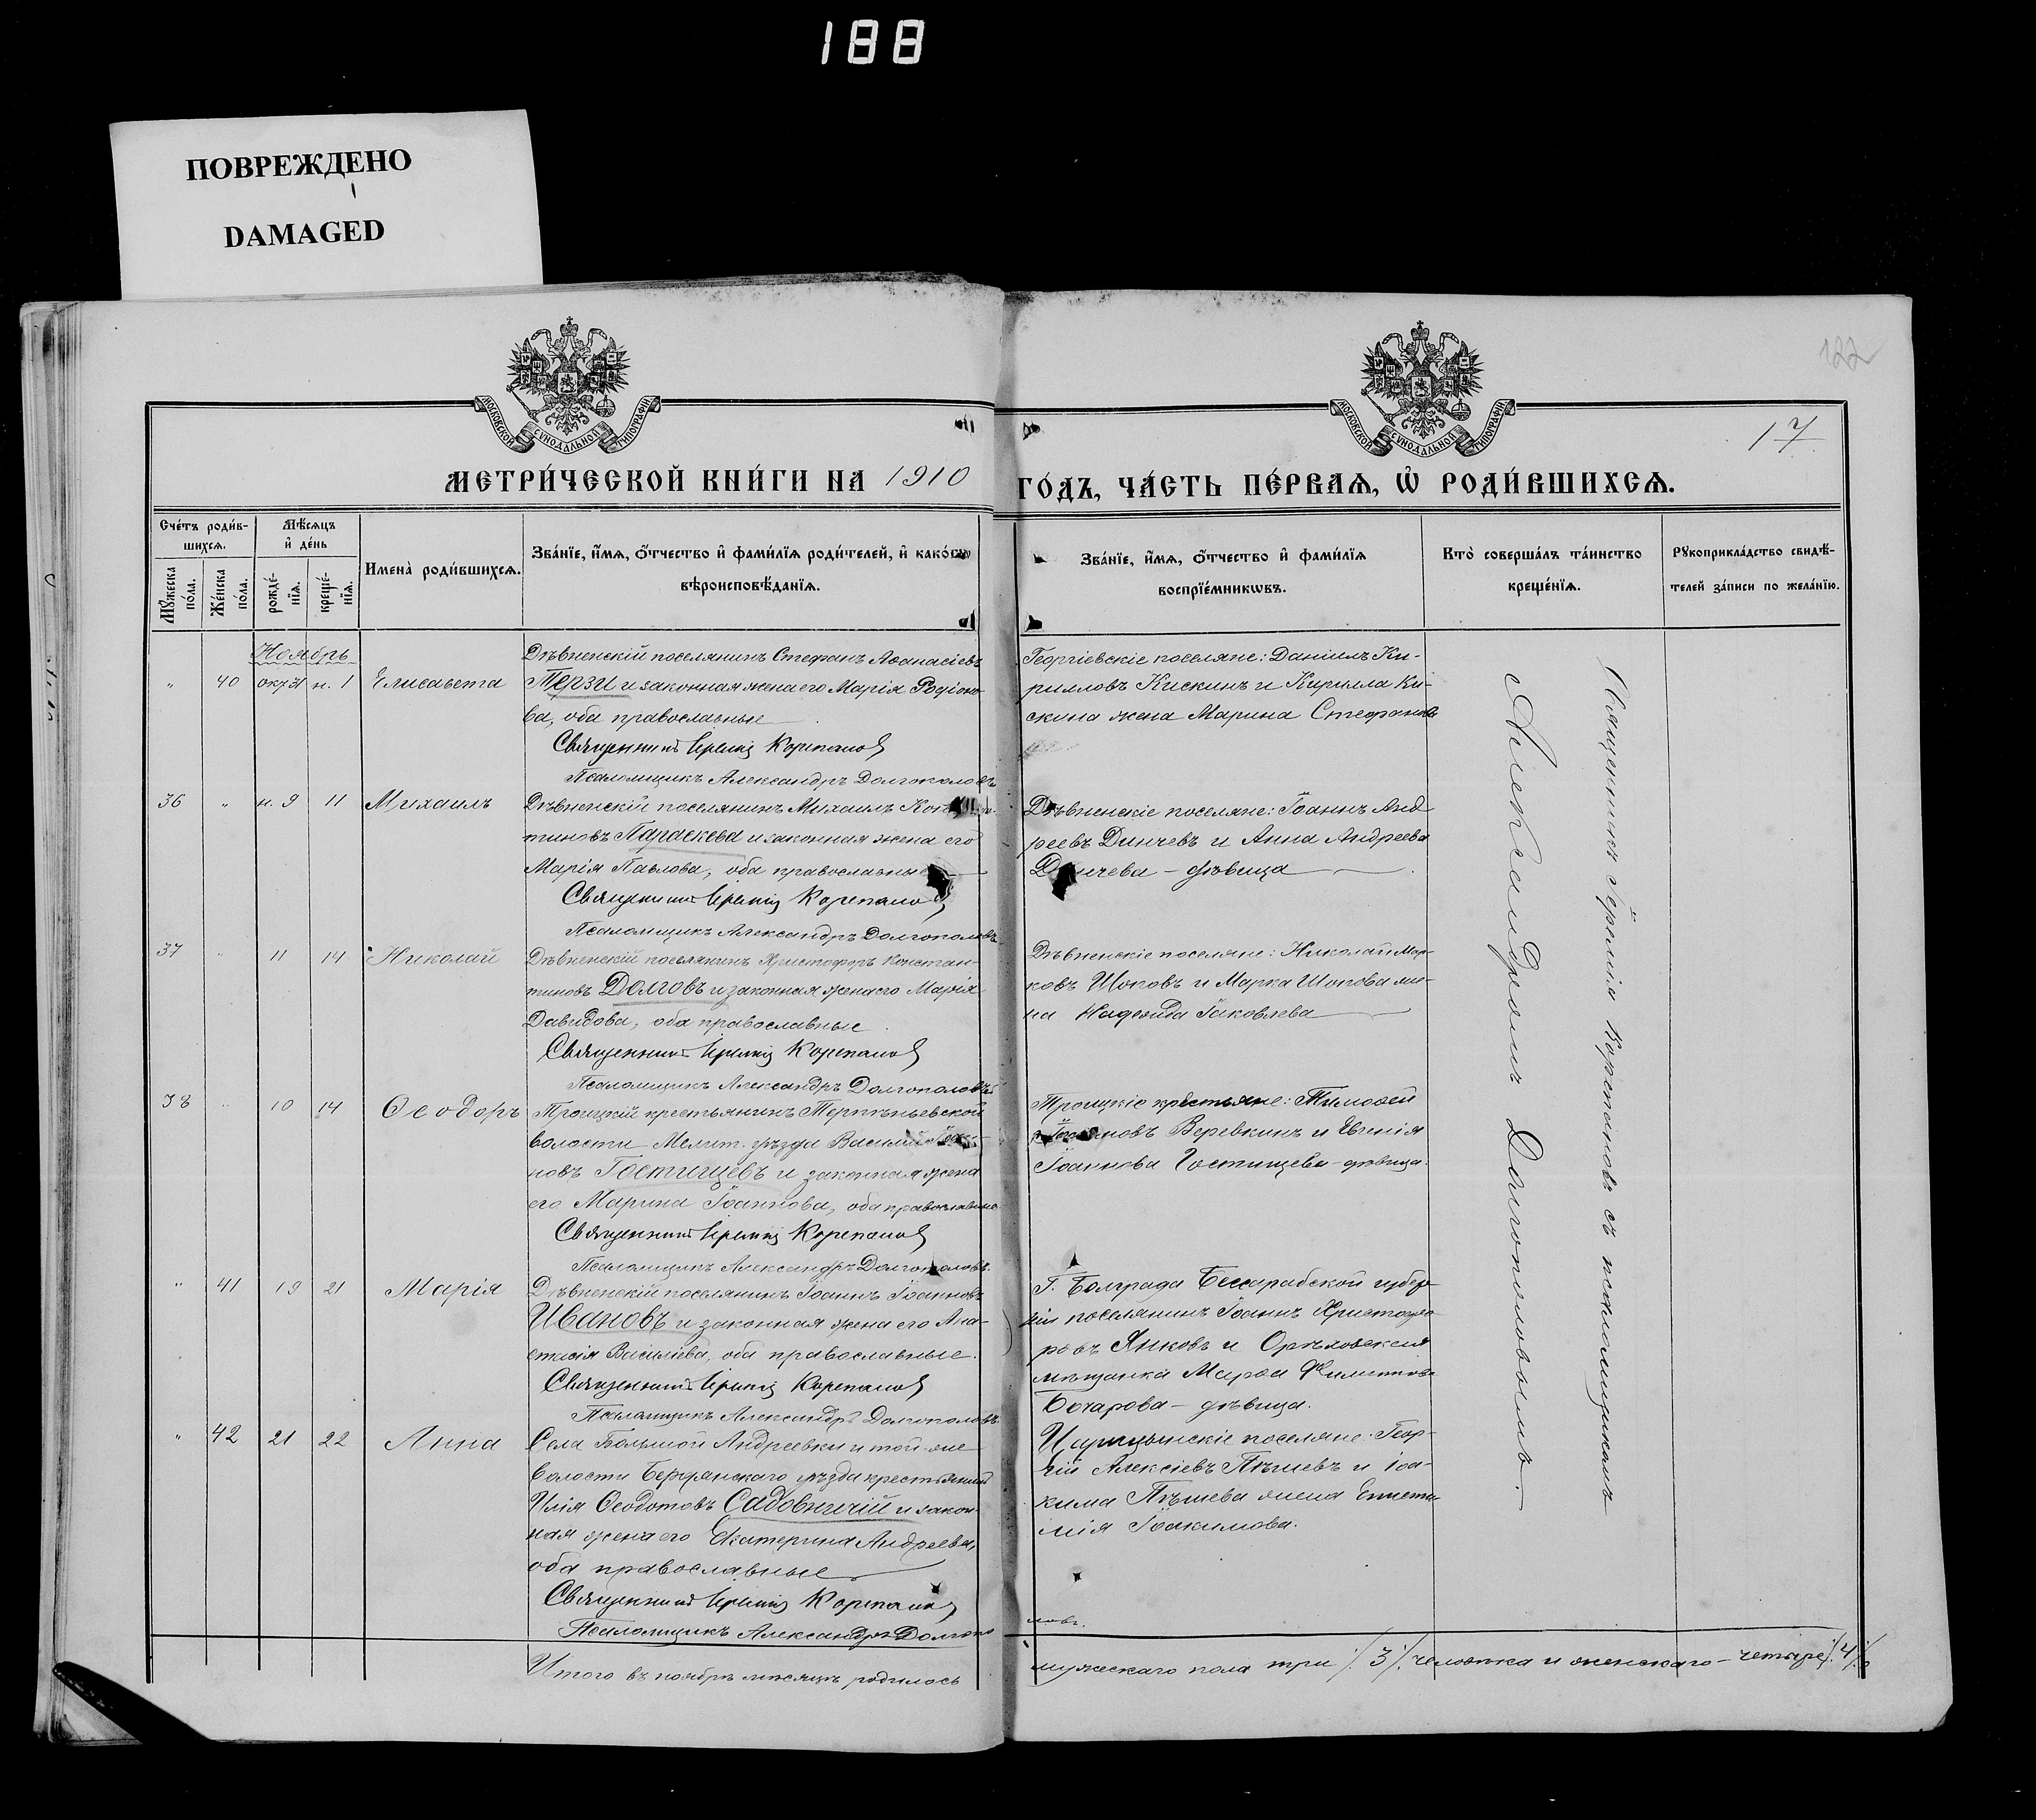 188
ПОВРЕЖДЕНО
DAMAGED
122
17
МОСКОВСКОЙ СѴНОДАЛЬНОЙ ТИПОГРАФІИ
МОСКОВСКОЙ СѴНОДАЛЬНОЙ ТИПОГРАФІИ
МЕТРИ́ЧЕСКОЙ КНИ́ГИ НА 1910 ГО́ДЪ, ЧА́СТЬ ПЕ́РВАѦ, Ѽ РОДИ́ВШИХСѦ.
Сче́тъ роди́в-
шихсѧ.
Мꙋ́жеска
по́ла.
Же́нска
по́ла.
Мѣ́сѧцъ
и҆ де́нь
рожде́-
нїѧ.
креще́-
нїѧ.
Имена̀ роди́вшихсѧ.
Зва́нїе, и҆́мѧ, ѻ҆́тчество и҆ фами́лїѧ роди́телей, и҆ како́гѡ
вѣроисповѣ́данїѧ.
Зва́нїе, и҆́мѧ, ѻ҆́тчество и҆ фами́лїѧ
воспрїе́мникѡвъ.
Кто̀ соверша́лъ та́инство
креще́нїѧ.
Рꙋкоприкла́дство свидѣ́-
телей за́писи по жела́нїю.
Ноябрь
" 40 окт 31 н. 1 Елисавета
Дѣвненскій поселянинъ Стефанъ Аѳанасіевъ
Терзи и законная жена его Марія Родіоно-
ва, оба православные
Священникъ Іеремія Корепановъ
Псаломщикъ Александръ Долгополовъ
Георгіевскіе поселяне: Даніилъ Ки-
рилловъ Кискинъ и Кирилла Ки-
скина жена Марина Стефанова
36 " н. 9 11 Михаилъ
Дѣвненскій поселянинъ Михаилъ
тиновъ Параскева и законная жена его
Марія Павлова, оба православные
Священникъ Іеремія Корепановъ
Псаломщикъ Александръ Долгополовъ
Дѣвненскіе поселяне: Іоаннъ Анд-
реевъ Динчевъ и Анна Андреева
Динчева - дѣвица
37 " 11 14 Николай
Дѣвненскій поселянинъ Христофоръ Констан-
тиновъ Долговъ и законная жена его Марія
Давидова, оба православные
Священникъ Іеремія Корепановъ
Псаломщикъ Александръ Долгополовъ
Дѣвненскіе поселяне: Николай Мар-
ковъ Шоповъ и Марка Шопова же-
на Надежда Іаковлева
38 " 10 14 Ѳеодоръ
Троицкій крестьянинъ Терпѣньевской
волости Мелит. уѣзда Василій Іоан-
новъ Гостищевъ и законная жена
его Марина Іоаннова, оба православные
Священникъ Іеремія Корепановъ
Псаломщикъ Александръ Долгополовъ.
Троицкіе крестьяне: Тимоѳей
Веревкинъ и Евгенія
Іоаннова Гостищева - дѣвица.
" 41 19 21 Марія
Дѣвненскій поселянинъ Іоаннъ Іоанновъ
Ивановъ и законная жена его Ана-
стасія Василіева, оба православные.
Священникъ Іеремія Корепановъ
Псаломщикъ Александръ Долгополовъ
Г. Болграда Бессарабской губер-
ніи поселянинъ Іоаннъ Христофо-
ровъ Янковъ и Орѣховская
мѣщанка Марѳа Филиппова
Бочарова - дѣвица.
" 42 21 22 Анна
Села Большой Андреевки и той-же
волости Бердянскаго уѣзда крестьянинъ
Илія Ѳеодотовъ Садовничій и закон-
ная жена его Екатерина Андреева,
оба православные
Священникъ Іеремія Корепановъ
Псаломщикъ Александръ Долгополовъ.
Царицынскіе поселяне: Геор-
гій Алексіевъ Пѣшевъ и Іоа-
кима Пѣшева жена Еписти-
мія Іоакимова.
Священникъ Іеремія Корепановъ съ псаломщикомъ
Александромъ Долгополовымъ.
Итого въ ноябрѣ мѣсяцѣ родилось мужескаго пола три /.3/. человѣка и женскаго - четыре /.4/.